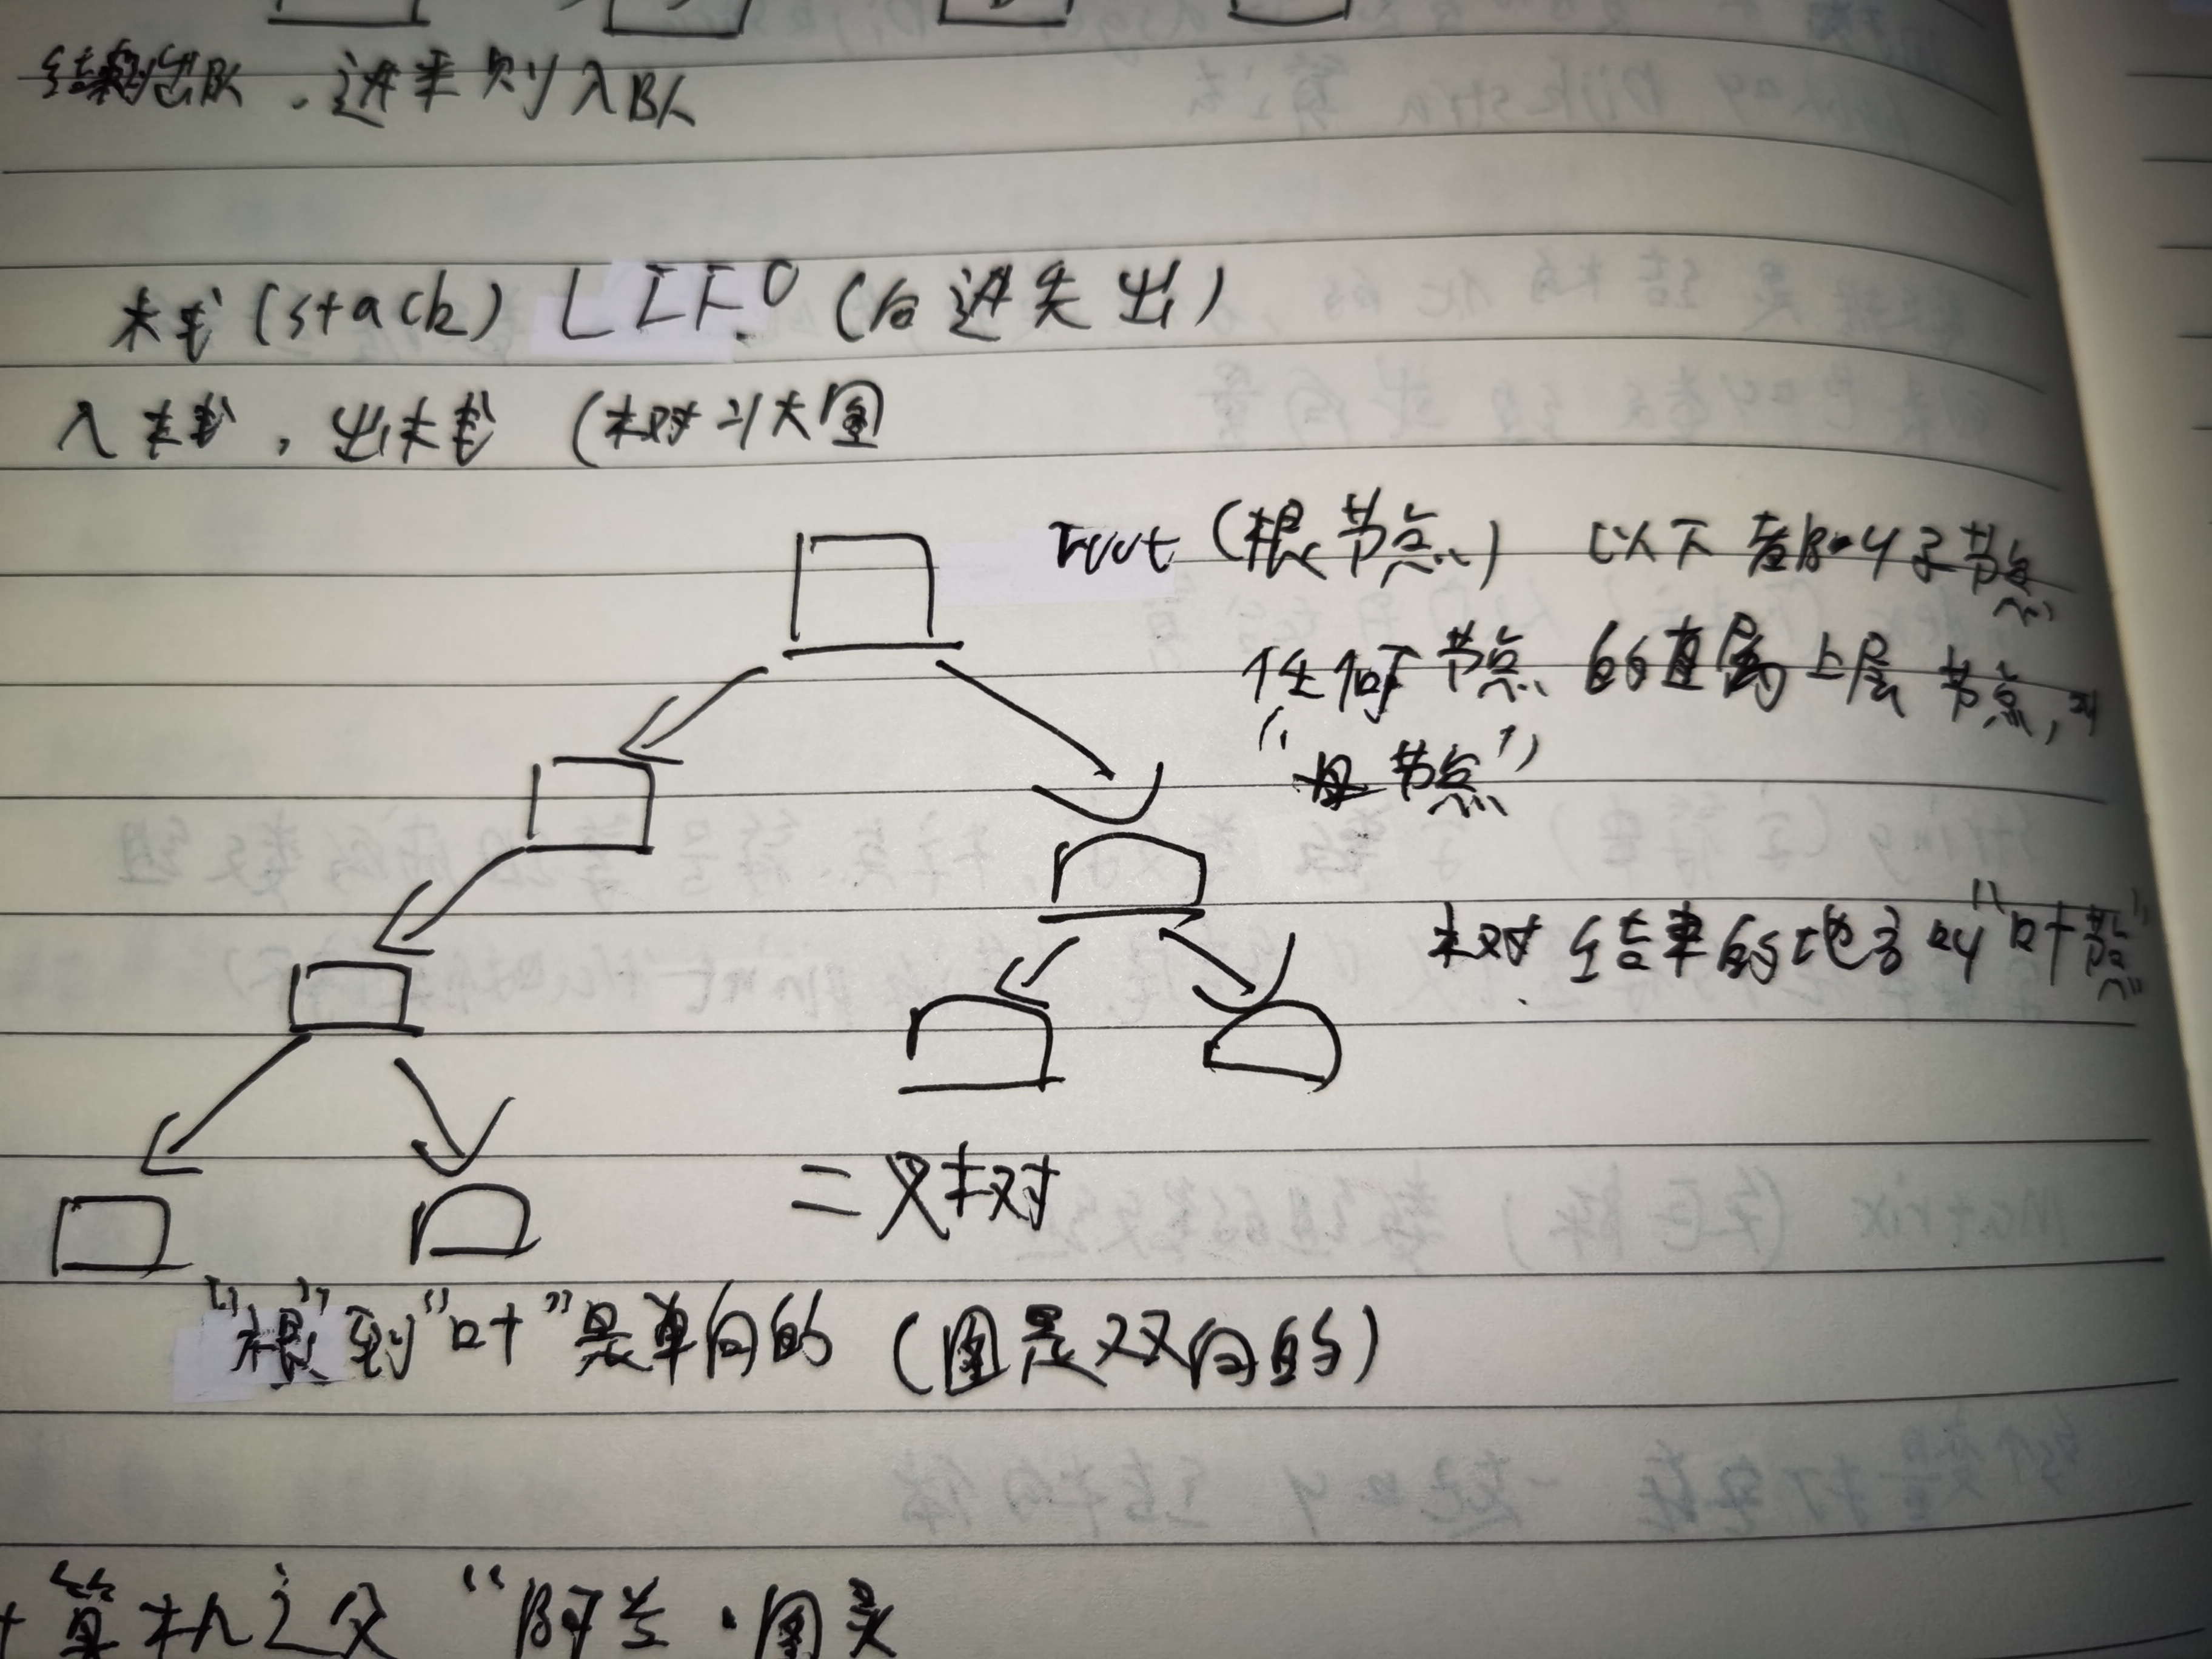 结束则出队．进来则入队
栈(stack) LIFO (后进先出)
入栈，出栈 (树状图
root (根节点) 以下都叫子节点
任何节点的直属上层节点，叫
“母节点”
树结束的地方叫“叶节点”
二叉树
“根”到“叶”是单向的 (图是双向的)
计算机之父 “阿兰·图灵